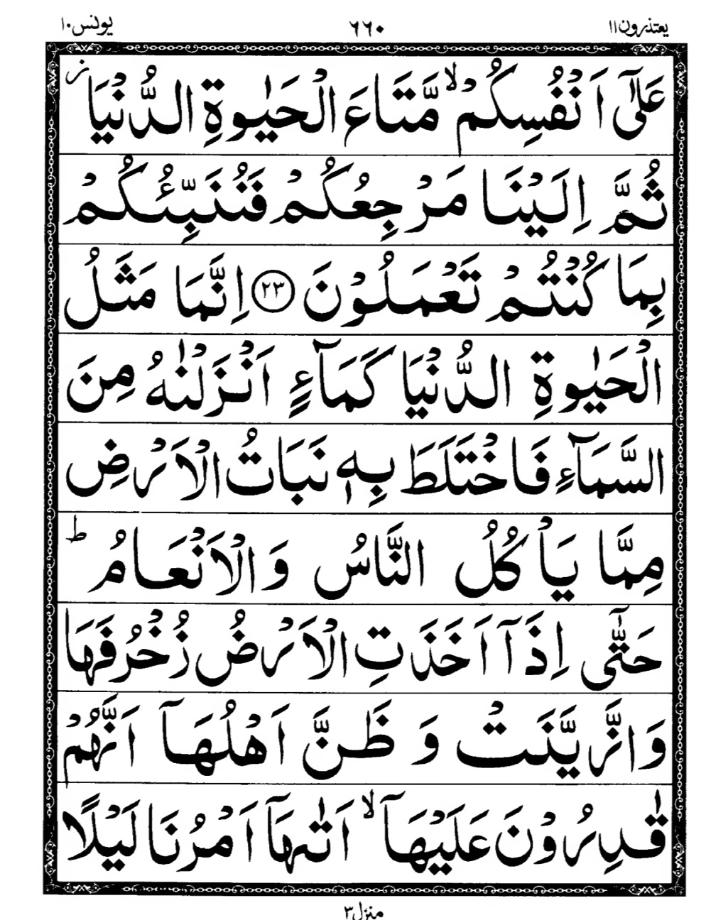 یعتذرون ۱۱ ۶۶۰ یونس ۱۰
عَلٰۤى اَنْفُسِكُمْ ۙ مَّتَاعَ الْحَیٰوةِ الدُّنْیَا ؗ
ثُمَّ اِلَیْنَا مَرْجِعُكُمْ فَنُنَبِّئُكُمْ
بِمَا كُنْتُمْ تَعْمَلُوْنَ ﴿۲۳﴾ اِنَّمَا مَثَلُ
الْحَیٰوةِ الدُّنْیَا كَمَآءٍ اَنْزَلْنٰهُ مِنَ
السَّمَآءِ فَاخْتَلَطَ بِهٖ نَبَاتُ الْاَرْضِ
مِمَّا یَاْكُلُ النَّاسُ وَالْاَنْعَامُ ؕ
حَتّٰۤى اِذَاۤ اَخَذَتِ الْاَرْضُ زُخْرُفَهَا
وَازَّیَّنَتْ وَظَنَّ اَهْلُهَاۤ اَنَّهُمْ
قٰدِرُوْنَ عَلَیْهَاۤ ۙ اَتٰىهَاۤ اَمْرُنَا لَیْلًا
منزل ۳